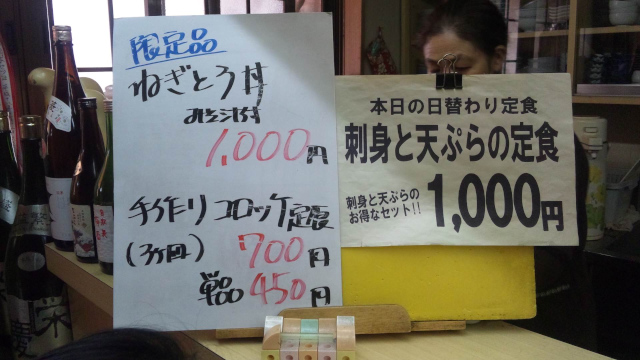 限定品
ねぎとろ丼
みそ汁付
1,000円
手作りコロッケ定食
(3ヶ回)700円
単品450円
本日の日替わり定食
刺身と天ぷらの定食
刺身と天ぷらの
お得なセット!!
1,000円